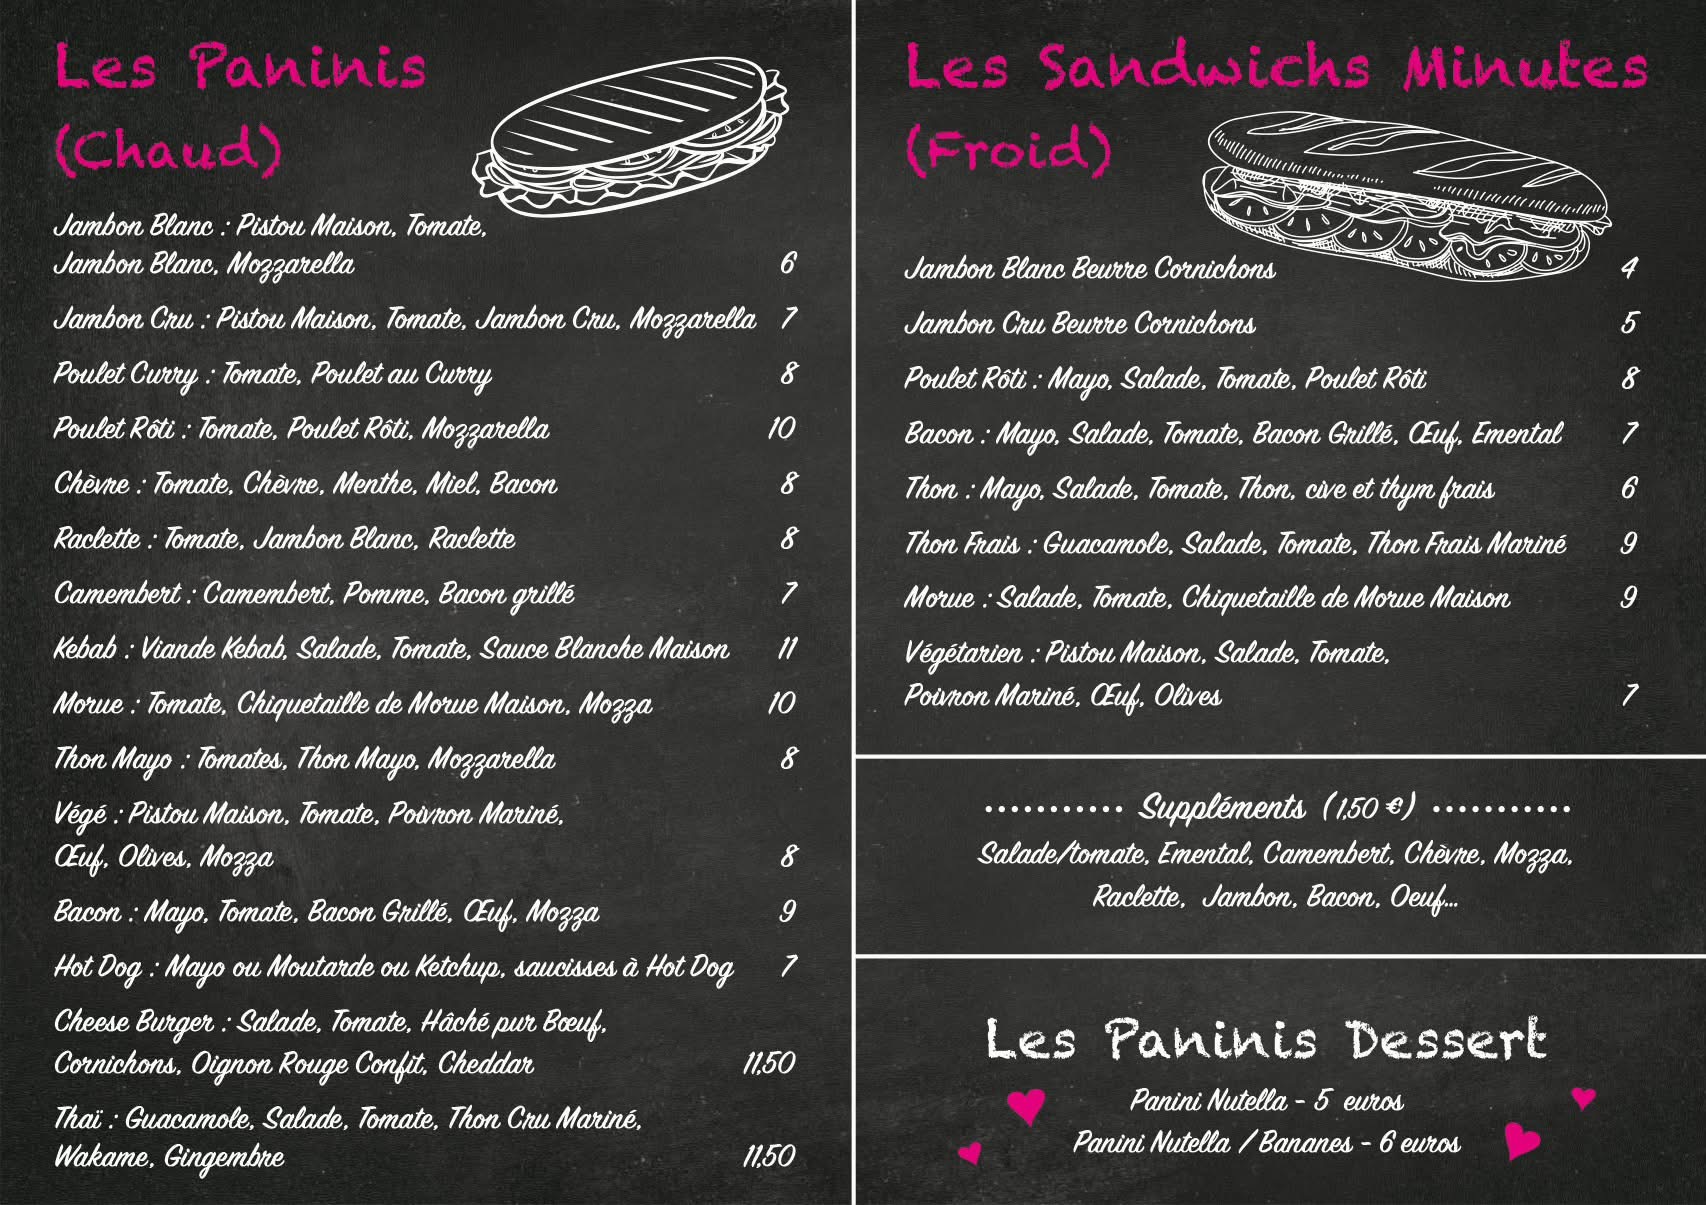 Les Paninis
(Chaud)
Jambon Blanc : Pistou Maison, Tomate,
Jambon Blanc, Mozzarella 6
Jambon Cru : Pistou Maison, Tomate, Jambon Cru, Mozzarella 7
Poulet Curry : Tomate, Poulet au Curry 8
Poulet Rôti : Tomate, Poulet Rôti, Mozzarella 10
Chèvre : Tomate, Chèvre, Menthe, Miel, Bacon 8
Raclette : Tomate, Jambon Blanc, Raclette 8
Camembert : Camembert, Pomme, Bacon grillé 7
Kebab : Viande Kebab, Salade, Tomate, Sauce Blanche Maison 11
Morue : Tomate, Chiquetaille de Morue Maison, Mozza 10
Thon Mayo : Tomates, Thon Mayo, Mozzarella 8
Végé : Pistou Maison, Tomate, Poivron Mariné,
Œuf, Olives, Mozza 8
Bacon : Mayo, Tomate, Bacon Grillé, Œuf, Mozza 9
Hot Dog : Mayo ou Moutarde ou Ketchup, saucisses à Hot Dog 7
Cheese Burger : Salade, Tomate, Hâché pur Bœuf,
Cornichons, Oignon Rouge Confit, Cheddar 11,50
Thaï : Guacamole, Salade, Tomate, Thon Cru Mariné,
Wakame, Gingembre 11,50
Les Sandwichs Minutes
(Froid)
Jambon Blanc Beurre Cornichons 4
Jambon Cru Beurre Cornichons 5
Poulet Rôti : Mayo, Salade, Tomate, Poulet Rôti 8
Bacon : Mayo, Salade, Tomate, Bacon Grillé, Œuf, Emental 7
Thon : Mayo, Salade, Tomate, Thon, cive et thym frais 6
Thon Frais : Guacamole, Salade, Tomate, Thon Frais Mariné 9
Morue : Salade, Tomate, Chiquetaille de Morue Maison 9
Végétarien : Pistou Maison, Salade, Tomate,
Poivron Mariné, Œuf, Olives 7
........... Suppléments (1,50 €) ...........
Salade/tomate, Emental, Camembert, Chèvre, Mozza,
Raclette, Jambon, Bacon, Oeuf...
Les Paninis Dessert
Panini Nutella - 5 euros
Panini Nutella / Bananes - 6 euros